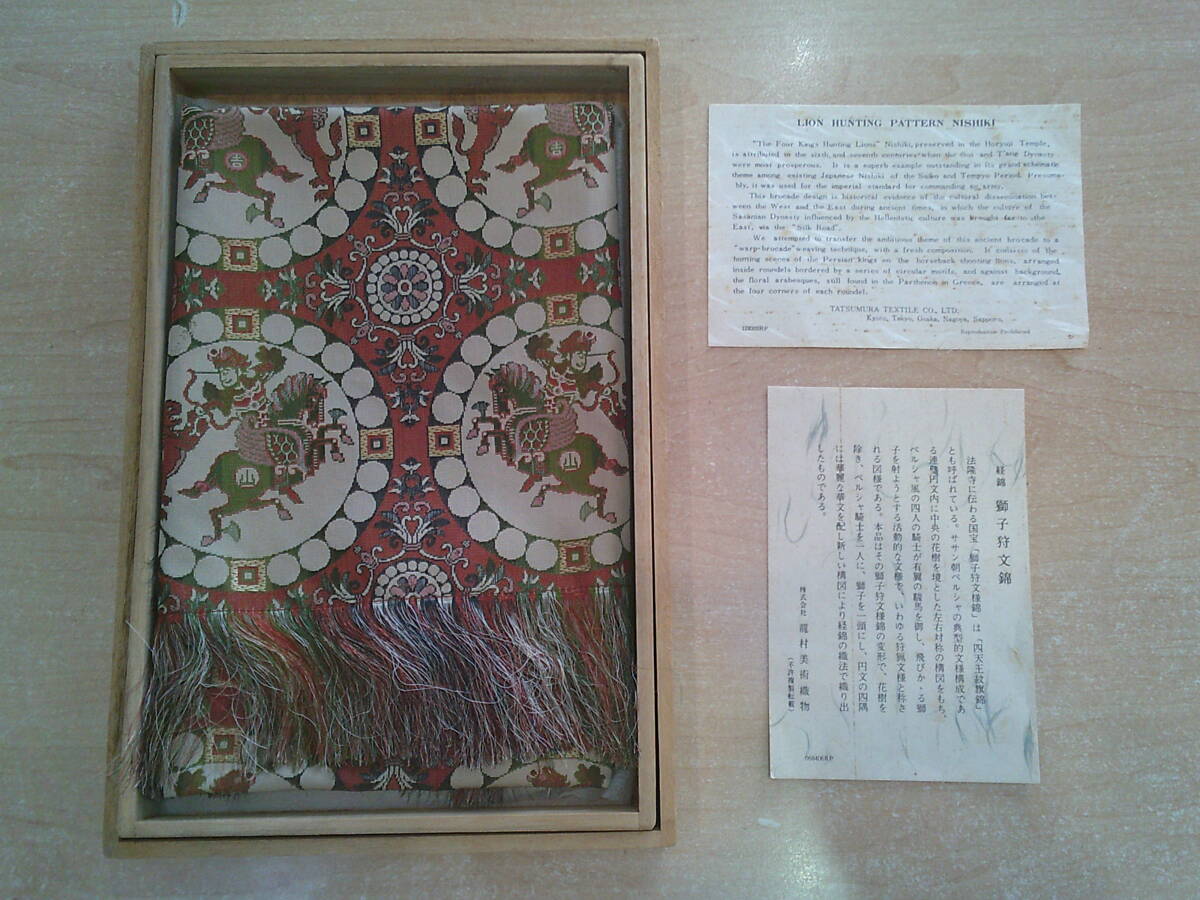 LION HUNTING PATTERN NISHIKI
"The Four Kings Hunting Lions" Nishiki, preserved in the Horyuji Temple,
is attributed to the sixth and seventh centuries when the Sui and T'ang Dynasty
were most prosperous. It is a superb example outstanding in its prized schematic
theme among existing Japanese Nishiki of the Suiko and Tempyo Period. Presuma-
bly, it was used for the imperial standard for commanding an army.
This brocade design is historical evidence of the cultural dissemination bet-
ween the West and the East during ancient times, in which the culture of the
Sasanian Dynasty influenced by the Hellenistic culture was brought far to the
East, via the "Silk Road".
We attempted to transfer the ambitious theme of this ancient brocade to a
"warp-brocade" weaving technique, with a fresh composition. It consists of the
hunting scenes of the Persian kings on the horseback shooting lions, arranged
inside roundels bordered by a series of circular motifs, and against background,
the floral arabesques, still found in the Parthenon in Greece, are arranged at
the four corners of each roundel.
TATSUMURA TEXTILE CO., LTD.
Kyoto, Tokyo, Osaka, Nagoya, Sapporo.
Reproduction Prohibited
経錦 獅子狩文錦
法隆寺に伝わる国宝「獅子狩文様錦」は「四天王紋旗錦」
とも呼ばれている。ササン朝ペルシャの典型的文様構成であ
る連珠円文内に中央の花樹を境とした左右対称の構図をもち、
ペルシャ風の四人の騎士が有翼の駿馬を御し、飛びかゝる獅
子を射ようとする活動的な文様で、いわゆる狩猟文様と称さ
れる図様である。本品はその獅子狩文様錦の変形で、花樹を
除き、ペルシャ騎士を一人に、獅子を一頭にし、円文の四隅
には華麗な華文を配し新しい構図により経錦の織法で織り出
したものである。
株式会社 龍村美術織物
(不許複製転載)
山
山
吉
吉